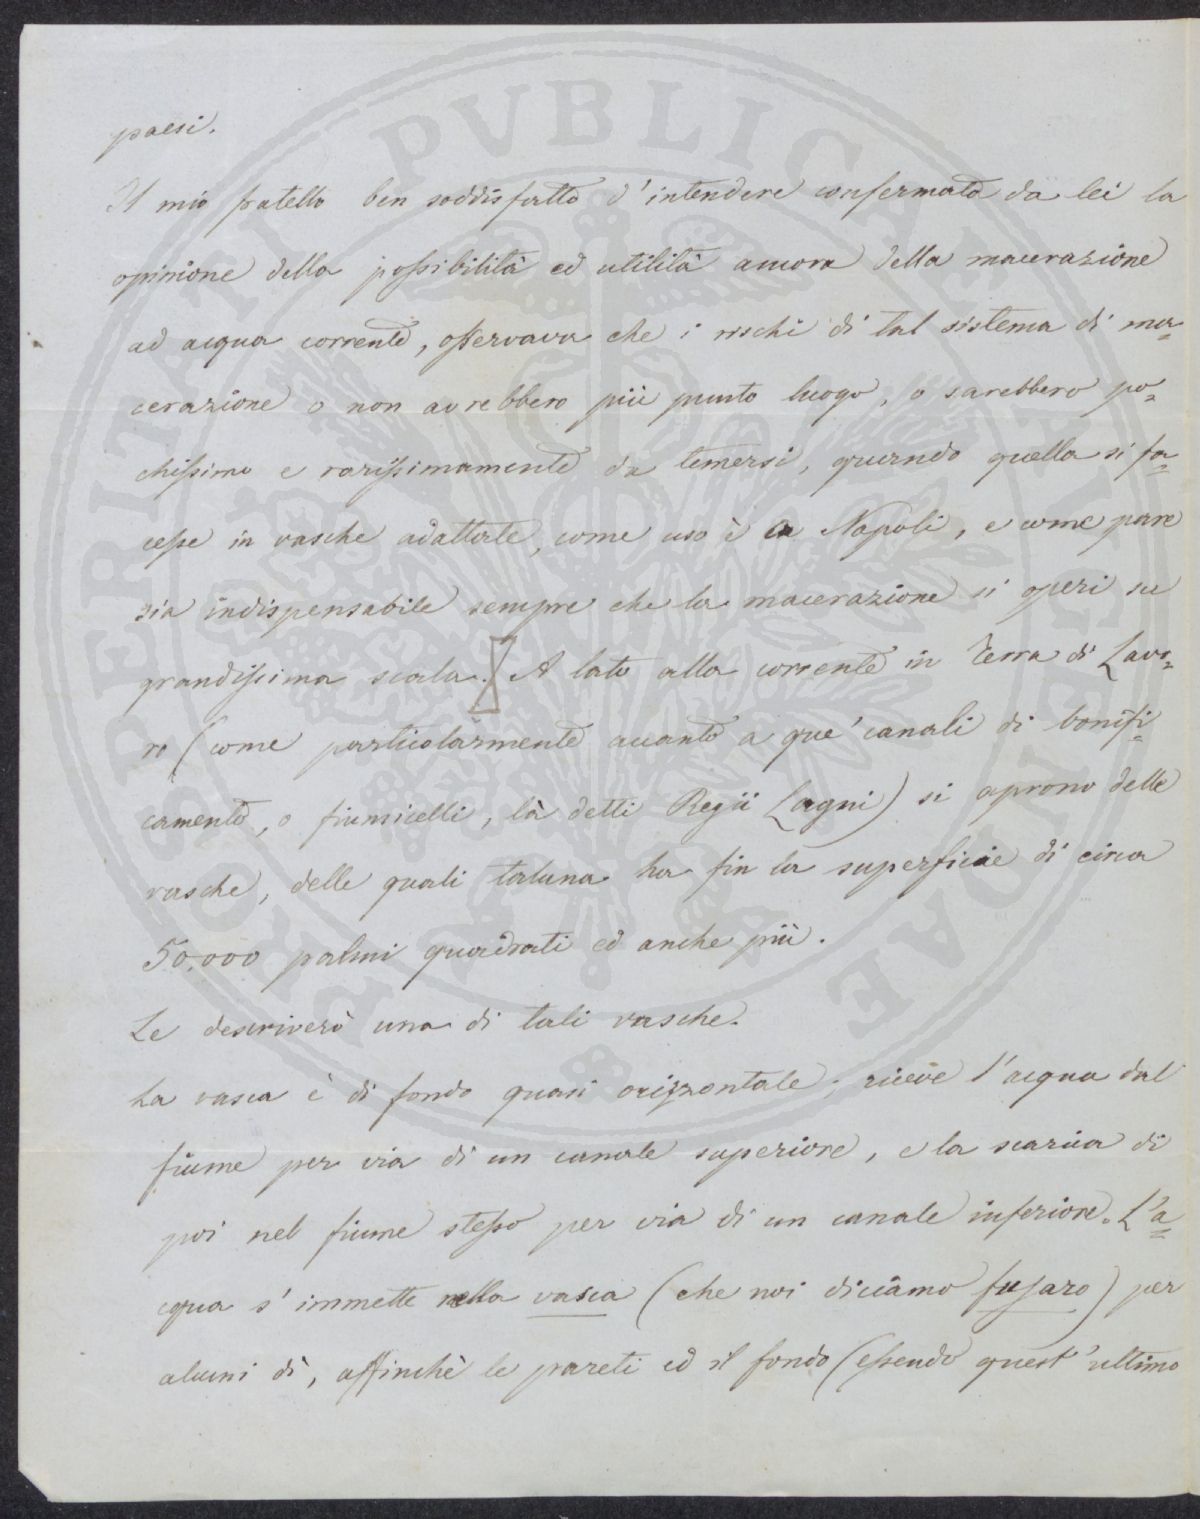 paesi.
Il mio fratello ben soddisfatto d'intendere confermata da lei la
opinione della possibilità ed utilità ancora della macerazione
ad acqua corrente, osservava che i rischi di tal sistema di ma=
cerazione o non avrebbero più punto luogo, o sarebbero po=
chissimo e rarissimamente da temersi, quando quella si fa=
cesse in vasche adattate, come uso è in Napoli, e come pare
sia indispensabile sempre che la macerazione si operi su
grandissima scala. A lato alla corrente in Terra di Lavo=
ro (come particolarmente accanto a que' canali di bonifi=
camento, o fiumicelli, là detti Regii Lagni) si aprono delle
vasche, delle quali taluna ha fin la superficie di circa
50,000 palmi quadrati ed anche più.
Le descriverò una di tali vasche.
La vasca è di fondo quasi orizzontale; riceve l'acqua dal
fiume per via di un canale superiore, e la scarica di
poi nel fiume stesso per via di un canale inferiore. L'a=
cqua s'immette nella vasca (che noi diciamo fusaro) per
alcuni dì, affinchè le pareti ed il fondo (essendo quest'ultimo
PROSPERITATI PVBLICAE AVGENDAE